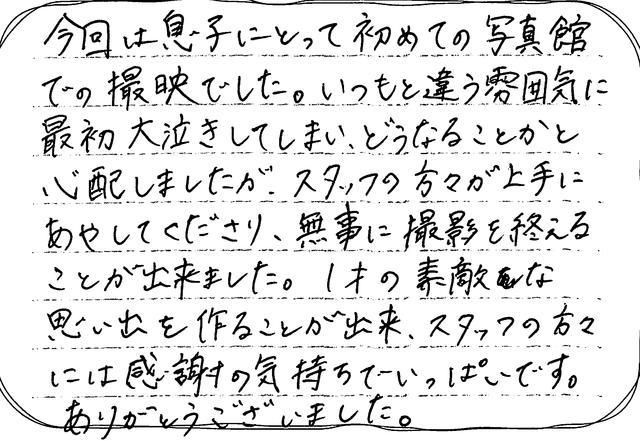 今回は息子にとって初めての写真館
での撮映でした。いつもと違う雰囲気に
最初大泣きしてしまい、どうなることかと
心配しましたが、スタッフの方々が上手に
あやしてくださり、無事に撮影を終える
ことが出来ました。1才の素敵な
思い出を作ることが出来、スタッフの方々
には感謝の気持ちでいっぱいです。
ありがとうございました。